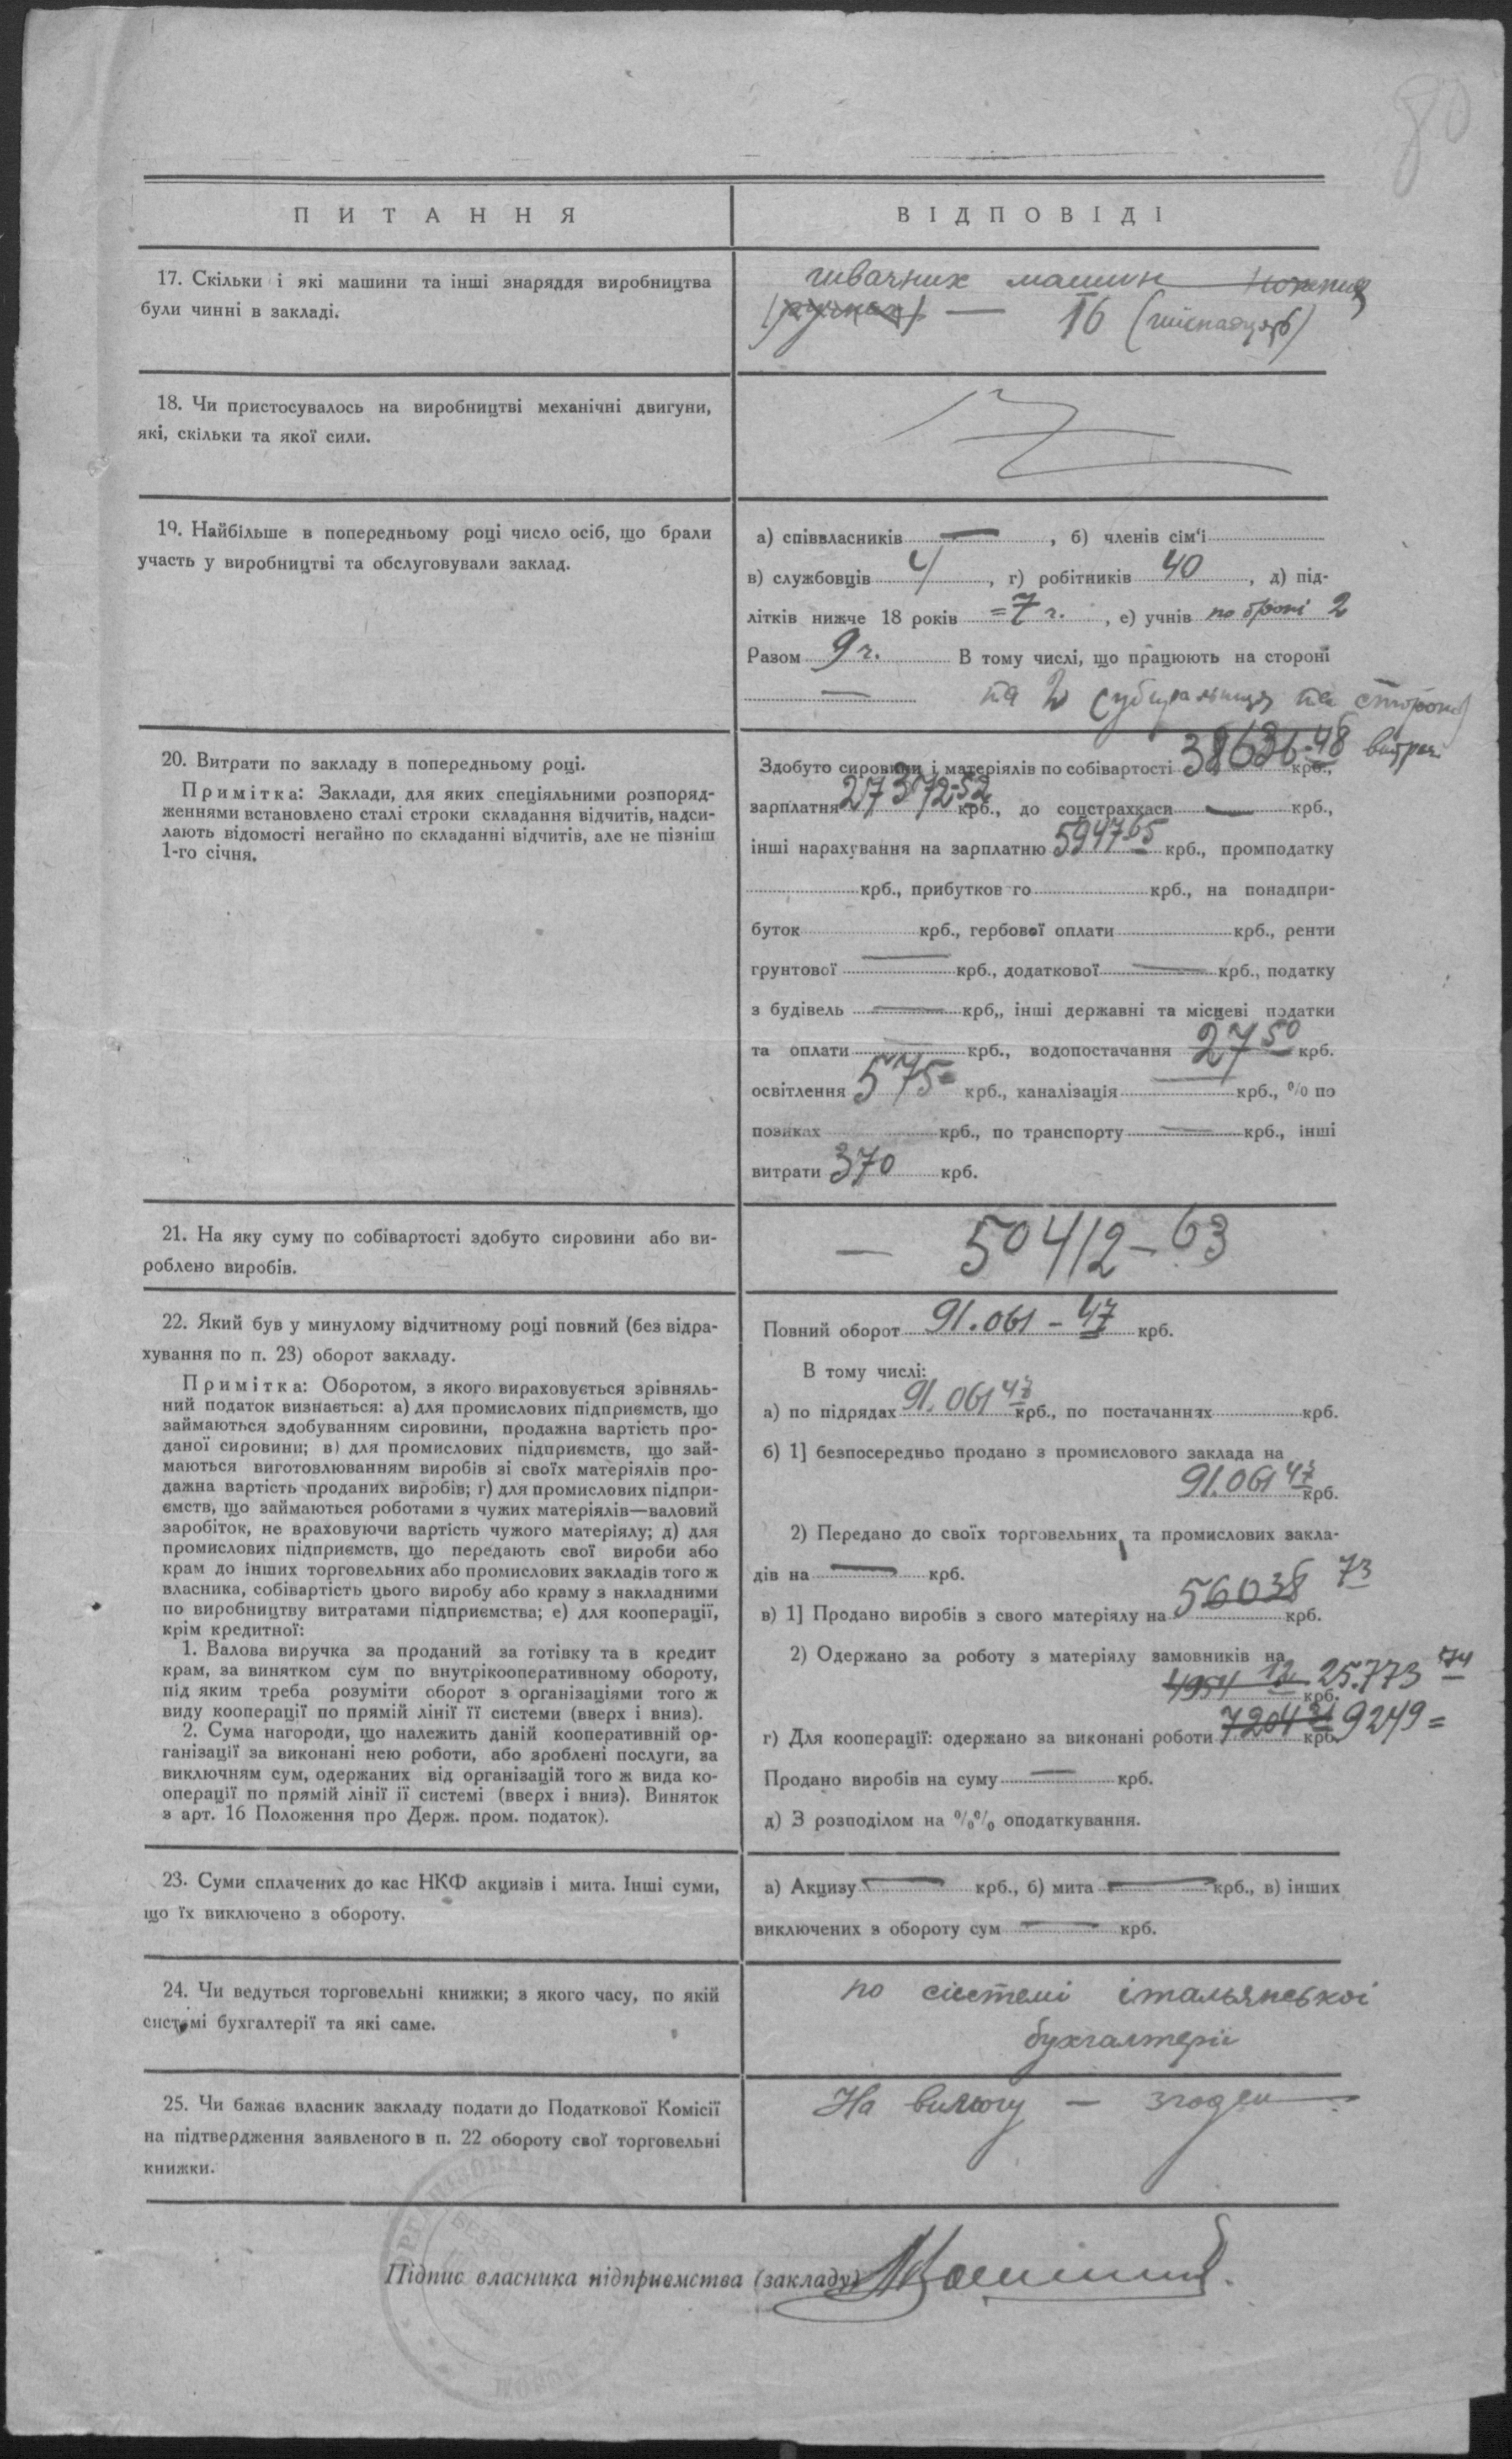 80
ПИТАННЯ
ВІДПОВІДІ
17. Скільки і які машини та інші знаряддя виробництва
були чинні в закладі.
швачних машин
— 16 (шіснадцять)
18. Чи пристосувалось на виробництві механічні двигуни,
які, скільки та якої сили.
19. Найбільше в попередньому році число осіб, що брали
участь у виробництві та обслуговували заклад.
а) співвласників —, б) членів сім'ї
в) службовців 4, г) робітників 40, д) під-
літків нижче 18 років =7 г., е) учнів по броні 2
Разом 9 г. В тому числі, що працюють на стороні
— та 2 на стороні
20. Витрати по закладу в попередньому році.
Примітка: Заклади, для яких спеціяльними розпоряд-
женнями встановлено сталі строки складання відчитів, надси-
лають відомості негайно по складанні відчитів, але не пізніш
1-го січня.
Здобуто сировини і матеріялів по собівартості 38636-48 крб.,
зарплатня 27372-52 крб., до соцстрахкаси — крб.,
інші нарахування на зарплатню 5947.65 крб., промподатку
крб., прибутков го крб., на понадпри-
буток крб., гербової оплати крб., ренти
грунтової — крб., додаткової — крб., податку
з будівель — крб,, інші державні та місцеві податки
та оплати — крб., водопостачання 27 50 крб.
освітлення 575= крб., каналізація — крб., % по
позиках крб., по транспорту — крб., інші
витрати 370 крб.
21. На яку суму по собівартості здобуто сировини або ви-
роблено виробів.
— 50412-63
22. Який був у минулому відчитному році повний (без відра-
хування по п. 23) оборот закладу.
Примітка: Оборотом, з якого вираховується зрівняль-
ний податок визнається: а) для промислових підприємств, що
займаються здобуванням сировини, продажна вартість про-
даної сировини; в) для промислових підприємств, що зай-
маються виготовлюванням виробів зі своїх матеріялів про-
дажна вартість проданих виробів; г) для промислових підпри-
ємств, що займаються роботами з чужих матеріялів—валовий
заробіток, не враховуючи вартість чужого матеріялу; д) для
промислових підприємств, що передають свої вироби або
крам до інших торговельних або промислових закладів того ж
власника, собівартість цього виробу або краму з накладними
по виробництву витратами підприємства; е) для кооперації,
крім кредитної:
1. Валова виручка за проданий за готівку та в кредит
крам, за винятком сум по внутрікооперативному обороту,
під яким треба розуміти оборот з організаціями того ж
виду кооперації по прямій лінії її системи (вверх і вниз).
2. Сума нагороди, що належить даній кооперативній ор-
ганізації за виконані нею роботи, або зроблені послуги, за
виключням сум, одержаних від організацій того ж вида ко-
операції по прямій лінії її системі (вверх і вниз). Виняток
з арт. 16 Положення про Держ. пром. податок).
Повний оборот 91.061-47 крб.
В тому числі:
а) по підрядах 91.061 47 крб., по постачаннях крб.
б) 1] безпосередньо продано з промислового заклада на
91.061 47 крб.
2) Передано до своїх торговельних та промислових закла-
дів на — крб.
в) 1] Продано виробів з свого матеріялу на 56038 73 крб.
2) Одержано за роботу з матеріялу замовників на
4954 12 25.773 74 крб.
г) Для кооперації: одержано за виконані роботи 7204 21 крб. 9249=
Продано виробів на суму — крб.
д) З розподілом на %% оподаткування.
23. Суми сплачених до кас НКФ акцизів і мита. Інші суми,
що їх виключено з обороту.
а) Акцизу — крб., б) мита — крб., в) інших
виключених з обороту сум — крб.
24. Чи ведуться торговельні книжки; з якого часу, по якій
системі бухгалтерії та які саме.
по системі італьянської
бухгалтерії
25. Чи бажає власник закладу подати до Податкової Комісії
на підтвердження заявленого в п. 22 обороту свої торговельні
книжки.
На вимогу — згоден
Підпис власника підприємства (закладу)